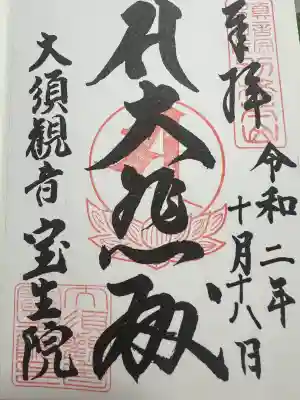 奉拝
令和二年
十月十八日
大悲殿
大須観音 宝生院